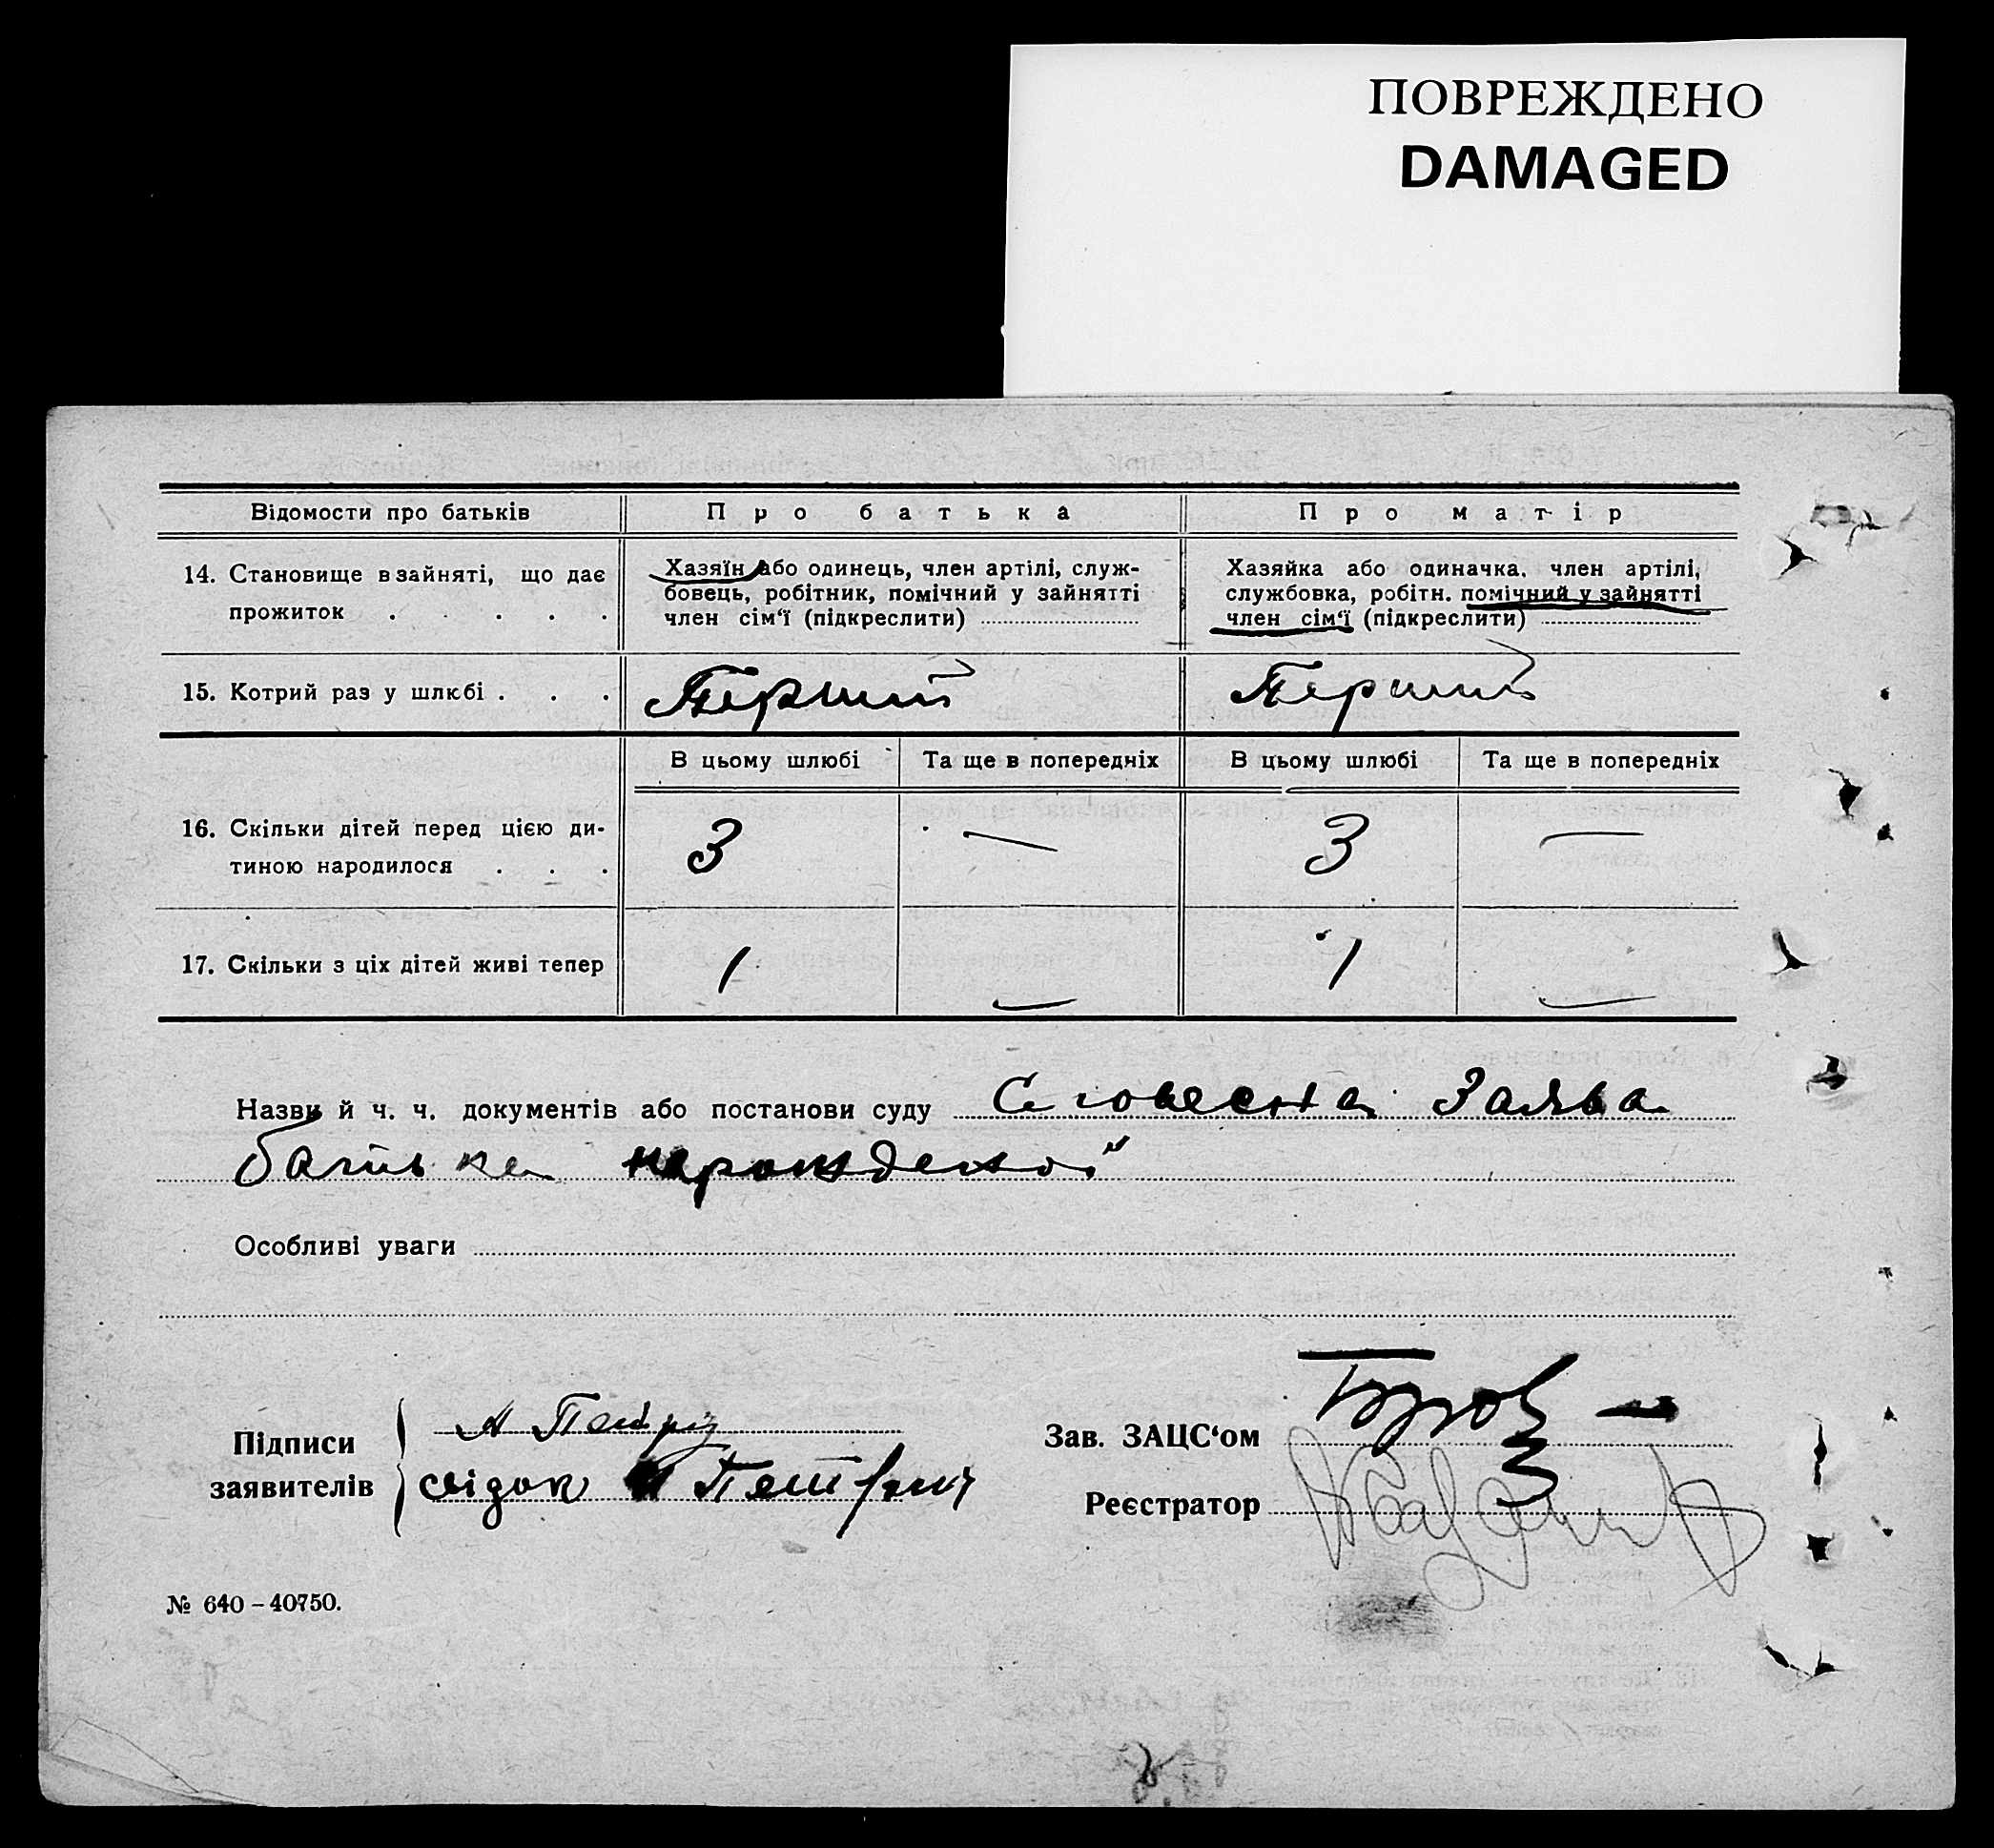 ПОВРЕЖДЕНО
DAMAGED
Відомости про батьків
Про батька
Про матір
14. Становище в зайняті, що дає
прожиток . . . .
Хазяїн або одинець, член артілі, служ-
бовець, робітник, помічний у зайнятті
член сім'ї (підкреслити)
Хазяйка або одиначка, член артілі,
службовка, робітн. помічний у зайнятті
член сім'ї (підкреслити)
15. Котрий раз у шлюбі . . .
Перший
Перший
В цьому шлюбі
Та ще в попередніх
В цьому шлюбі
Та ще в попередніх
16. Скільки дітей перед цією ди-
тиною народилося . . .
3
—
3
—
17. Скільки з ціх дітей живі тепер
1
—
1
—
Назви й ч. ч. документів або постанови суду Словесна Заява
батька нарожденой
Особливі уваги
Підписи
заявителів
свідок
Зав. ЗАЦС'ом
Реєстратор
№ 640 – 40750.